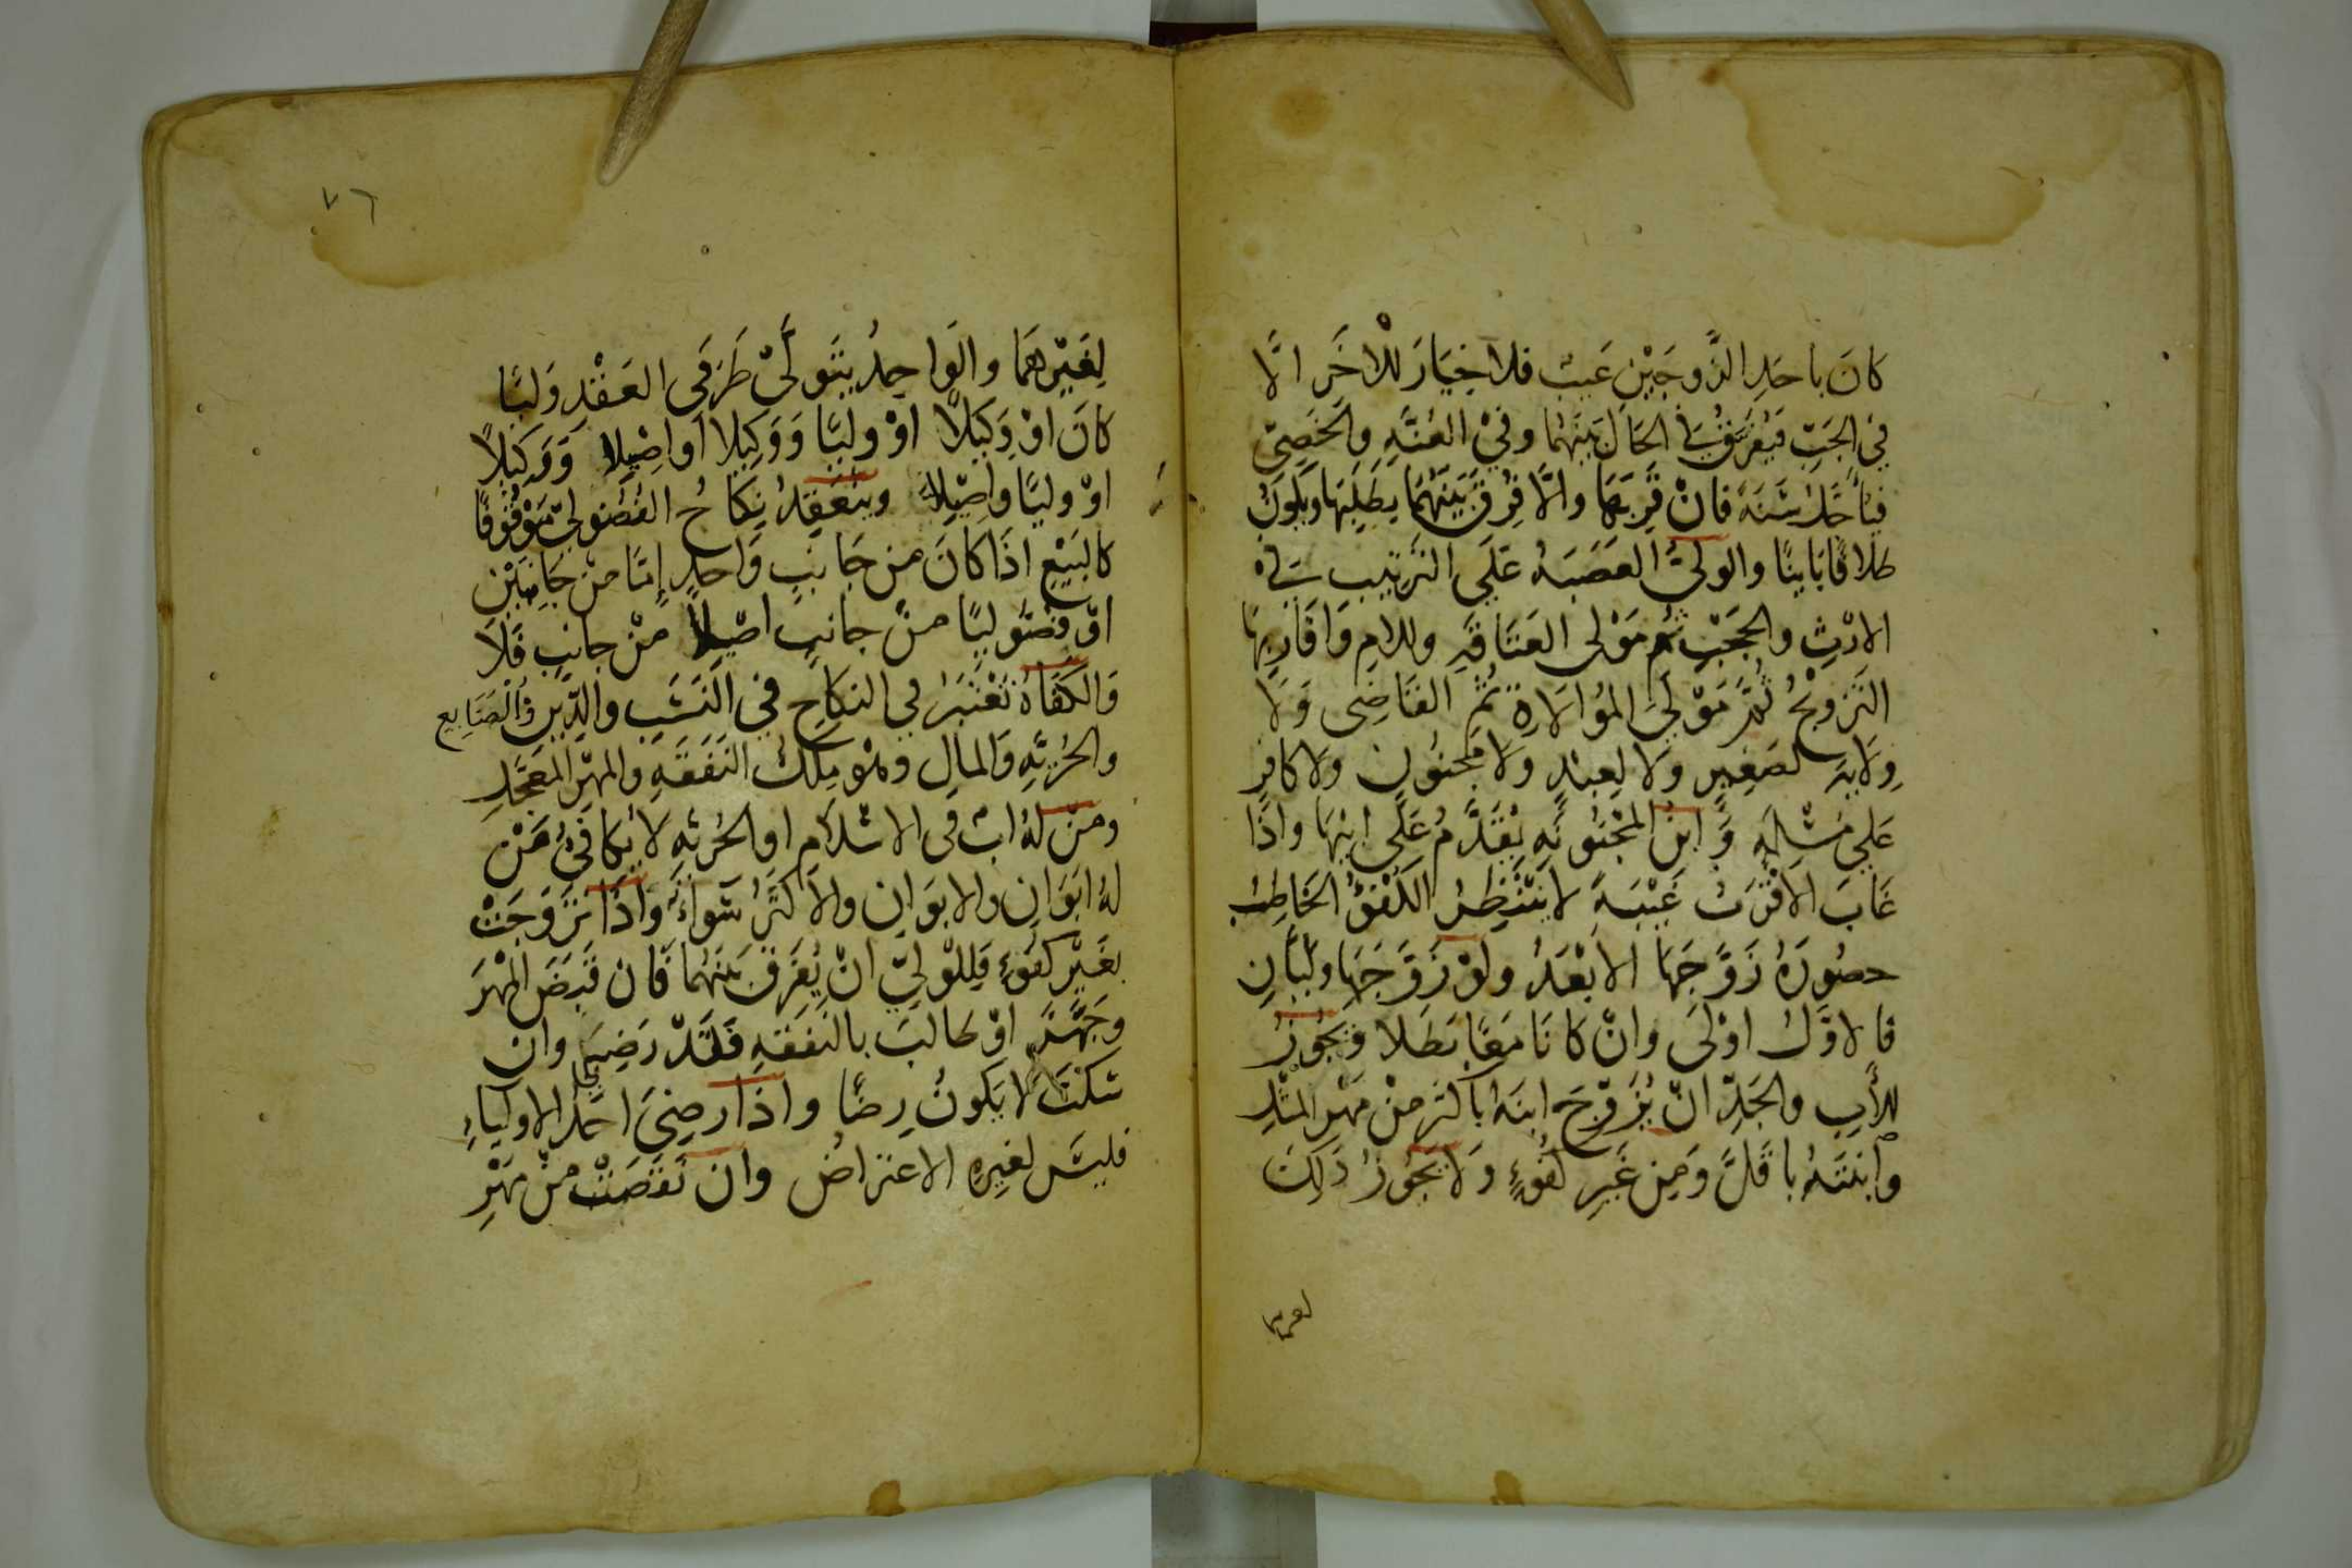 كَانَ باحَدِ الزَّوجَيْنِ عَيبٌ فلاخِيَارَ للْاخَرِ الَّا
فى الجَبِّ فَيُفَرَّقُ فِي الحَالِ بَيْنَهُمَا وفىْ العُنَّهِ والخَصِيّ
فيُأجَّلُ سَنَةً فانْ قَرِبَهَا والَّا فُرِقَ بَيْنَهُمَا بِطَلَبِهَا ويَكُونُ
طَلَاقًا بَايِنًا والوَلِىُّ العَصَبَهُ عَلَى التَرتِيبِ فِى
الارْثِ والحَجْبِ ثُم مَوْلى العَتَاقَهِ وللامِ وَاقَارِبِهَا
التَزوِيْجُ ثُمَّ مَوْلَى المُوَالَاةِ ثُمَ القَاضِى وَلَا
وِلَايَة لصَغِيرٍ وَلَا لِعبدٍ ولَا مَجنُونٍ ولا كافِرٍ
عَلي مُسْلِمَهٍ وَابنُ المجْنُونَهِ يُقَدَّمُ عَلَى ابِيهَا واذَا
غَابَ الاقْرَبُ غَيْبَةً لا يَنْتَظِرُ الكُفْوُ الخَاطِبُ
حضُورَهُ زَوَّجَهَا الابْعَدُ ولَوْ زَوَّجَهَا وَليَّانِ
فالاوَّلُ اوْلَى وانْ كَانَا مَعًا بَطَلا وَيَجُوزُ
للْأبِ والجَدِّ انْ يُزَوِّجَ ابنَهُ باكثَر مِنْ مَهْرِ المِثْلِ
وابْنَتَهُ باقَلَّ وَمِن غَيرِ كُفُوءٍ وَلَا يَجُوزُ ذَلِكَ
لغيرهما
٧٦
لِغَيْرِهِمَا والوَاحِدُ يَتَوَلَّىْ طَرَفَىِ العَقْدِ وَليًّا
كَانَ اوْ وَكِيْلاً اوْ وليًّا وَوَكِيلا اَو اصِيْلاً وَوَكِيلاً
اوْ وليًّا واصِيْلاً وينْعَقِدُ نِكَاحُ الفُضُولِيّ مَوْقُوفًا
كالبَيْعِ اذَا كَانَ مِن جَانِبٍ وَاحِدٍ اِمَّا مِنْ جَانِبَيْنِ
اوْ فضُوليًا مِنْ جانبٍ اصْيلاً مِنْ جانبٍ فَلَا
وَالكَفَاةُ تُعْتَبَرُ فى النكَاحِ فى النَسَبِ والدِّينِ وَالصَنَايِع
والحُرِّيَّهِ وَالمَالِ وهُو مِلْكُ النَفَقَهِ والمهْرِ المُعَجَّلِ
ومَنْ لهُ ابٌ فى الاسْلَامِ اوِ الحُرِّيَّهِ لَا يُكَافِئُ مَنْ
لهُ ابَوَانِ والابَوَانِ والاكثَرُ سَوَاءٌ وَاذَا تَزَوَجَتْ
بغَيْرِ كفُوءٍ فَلِلْوَلِيّ انْ يُفَرِقَ بَيْنَهُمَا فَان قَبَضَ المَهْرَ
وجَهَّزَ اوْ طالبَ بالنَفَقَهِ فَقَدْ رَضِىَ وان
سَكَتَ لا يَكُونُ رِضًا واذا رضِىَ احَدُ الاوليَاءِ
فليسَ لغيره الاعتراضُ وان نَقَصَتْ مِنْ مَهْرِ